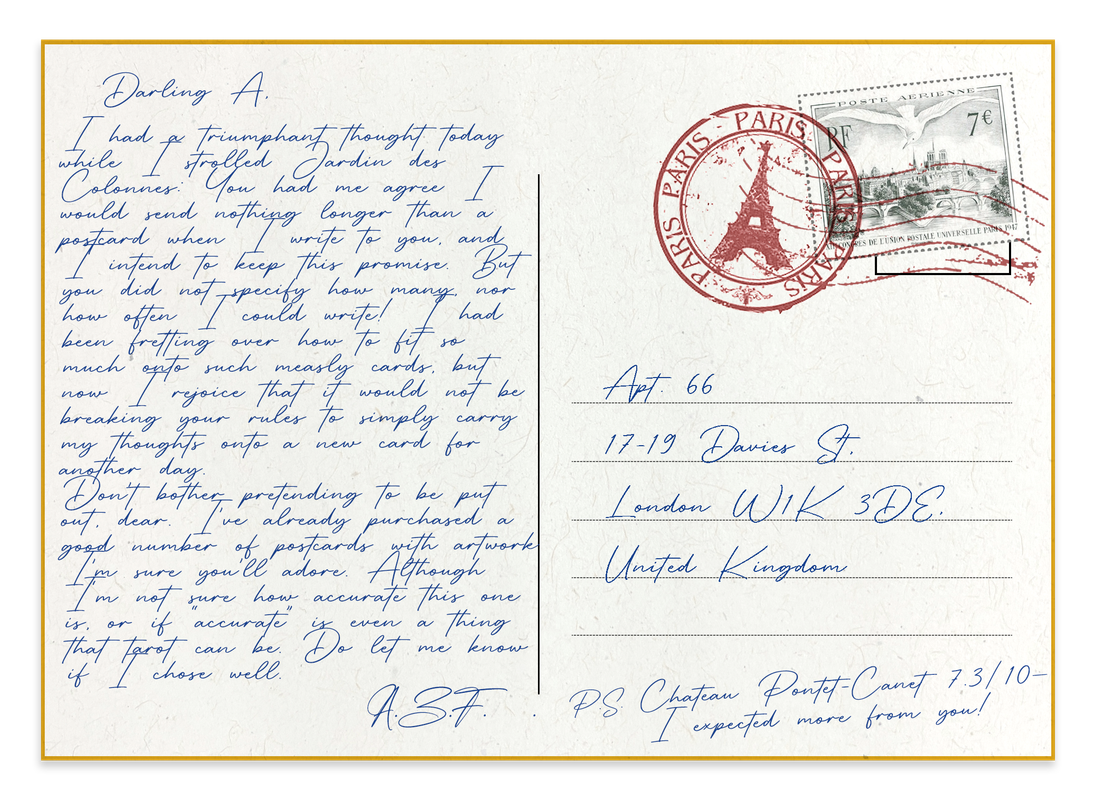 Darling A.
I had a triumphant thought today
while I strolled Jardin des
Colonnes: You had me agree I
would send nothing longer than a
postcard when I write to you, and
I intend to keep this promise. But
you did not specify how many, nor
how often I could write! I had
been fretting over how to fit so
much onto such measly cards, but
now I rejoice that it would not be
breaking your rules to simply carry
my thoughts onto a new card for
another day.
Don't bother pretending to be put
out, dear. I've already purchased a
good number of postcards with artwork
I'm sure you'll adore. Although
I'm not sure how accurate this one
is, or if "accurate" is even a thing
that tarot can be. Do let me know
if I chose well.
A.Z.F.
PARIS PARIS PARIS PARIS PARIS PARIS
POSTE AERIENNE
RF
7€
CONGRES DE L'UNION POSTALE UNIVERSELLE PARIS 1947
Apt. 66
17-19 Davies St.
London W1K 3DE.
United Kingdom
PS Chateau Pontet-Canet 7.3/10-
I expected more from you!